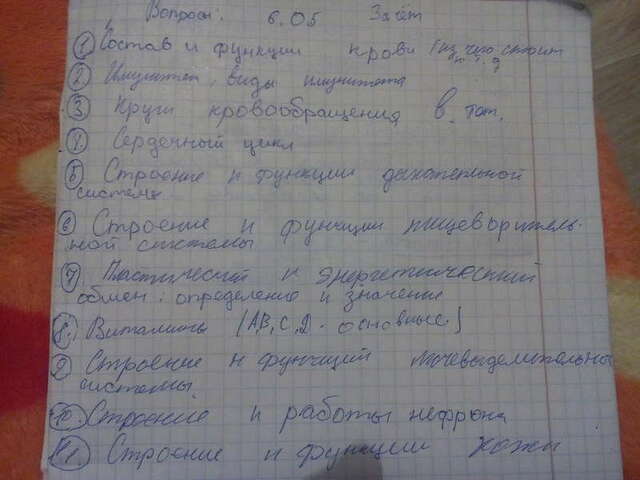 Вопросы: 6.05 Зачёт
1 Состав и функции крови (из чего стоит
2 Иммунитет, виды иммунитета
3 Круги кровообращения, в
4. Сердечный цикл
5 Строение и функции дыхательной
системы
6 Строение и функции пищеваритель-
ной системы
7 Пластический и энергетический
обмен: определение и значение
8. Витамины (A, B, C, D - основные)
9 Строение и функций мочевыделительной
системы
10. Строение и работы нефрона
11. Строение и функции кожи